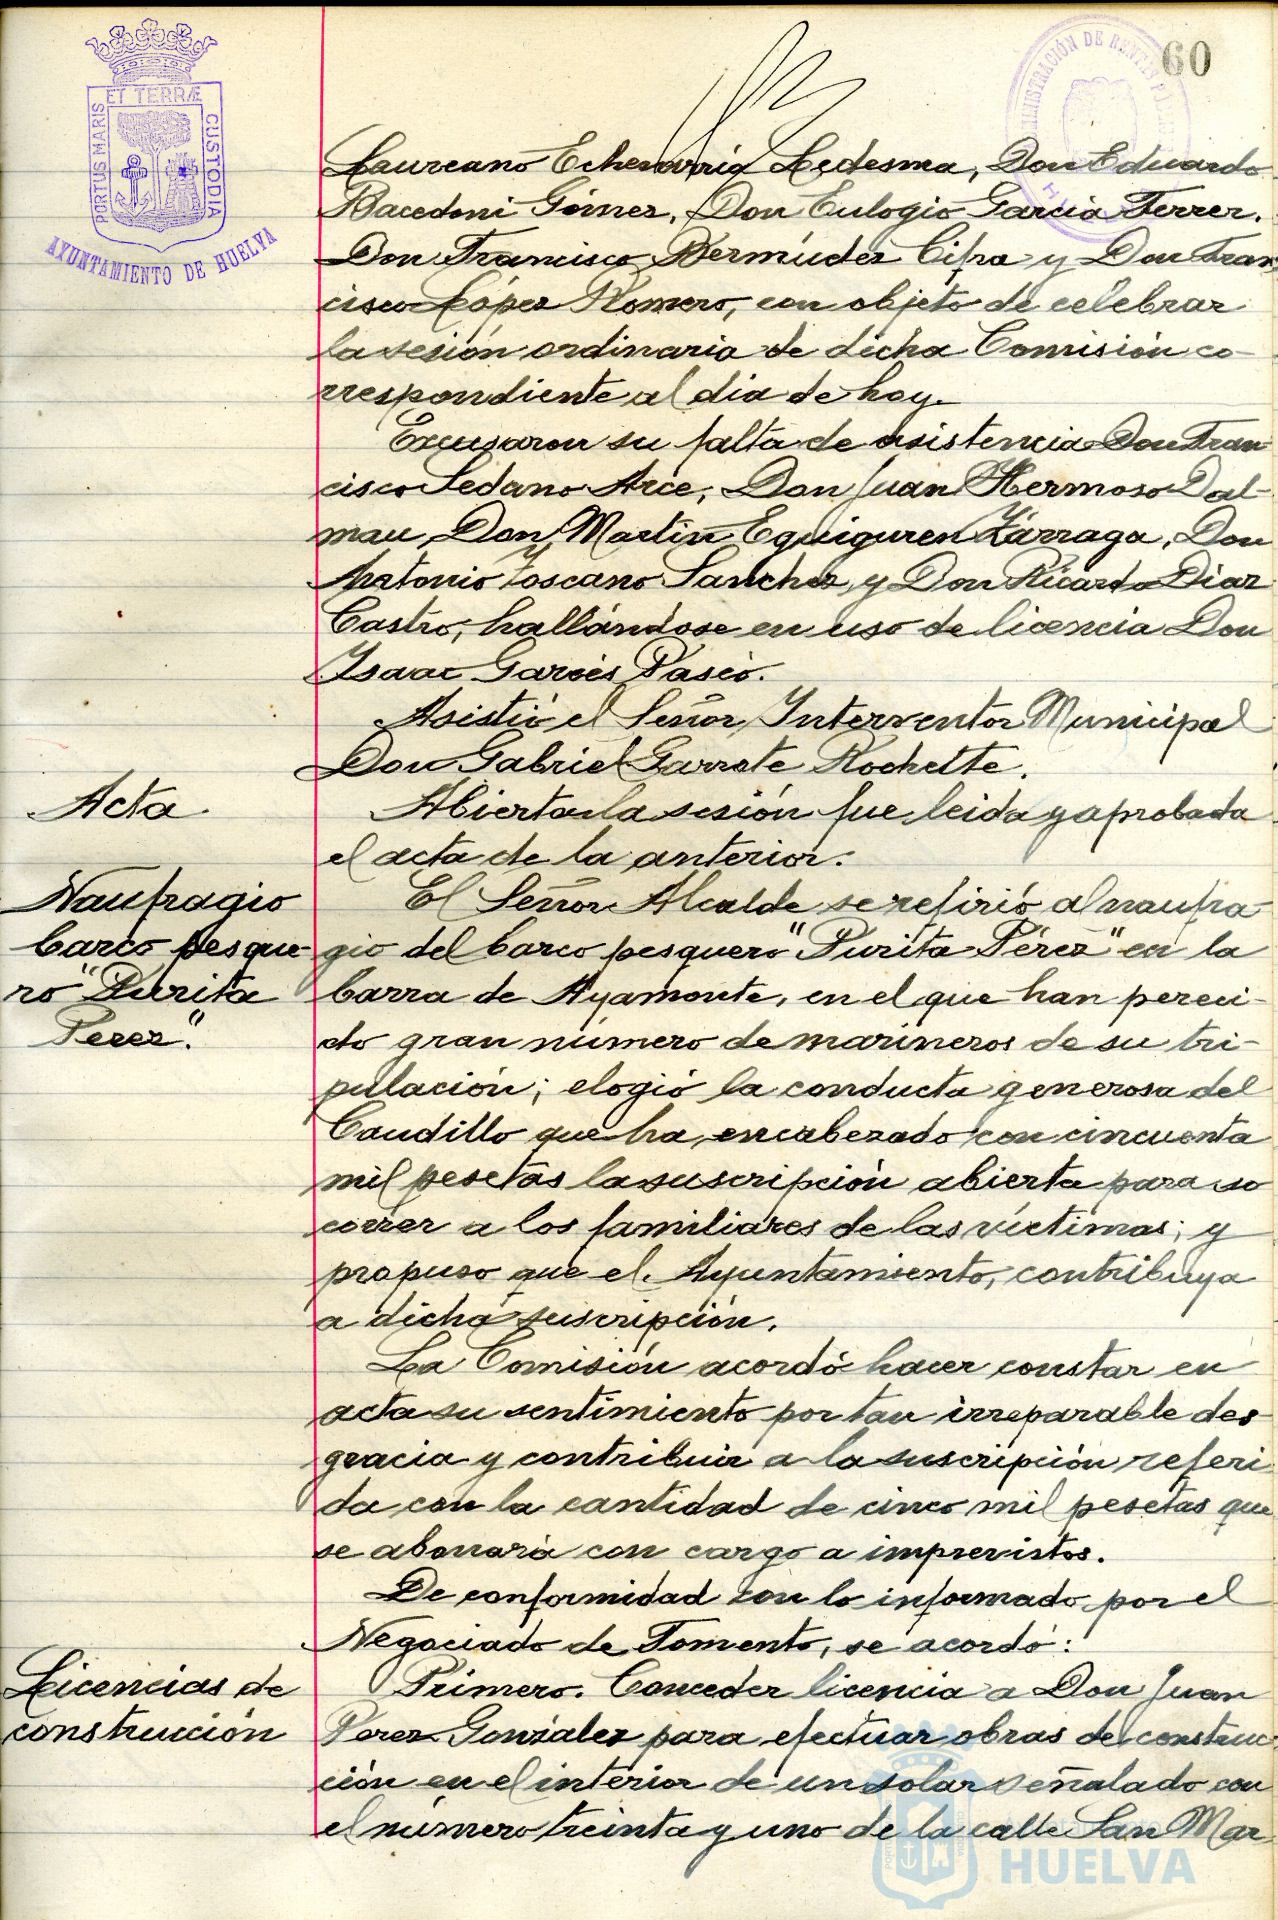 60
PORTUS MARIS ET TERRÆ CUSTODIA
AYUNTAMIENTO DE HUELVA
ADMINISTRACIÓN DE RENTAS
Laureano Echevarria Ledesma, Don Eduardo
Bacedoni Gómez, Don Eulogio García Ferrer,
Don Francisco Bermúdez Cifra y Don Fran
cisco López Romero, con objeto de celebrar
la sesión ordinaria de dicha Comisión co-
rrespondiente al dia de hoy.
Excusaron su falta de asistencia Don Fran
cisco Sedano Arce, Don Juan Hermoso Dal-
mau, Don Martín Eguiguren Zárraga, Don
Antonio Toscano Sanchez y Don Ricardo Diaz
Castro, hallándose en uso de licencia Don
Isaac Garcés Paseo.
Asistió el Señor Interventor Municipal
Don Gabriel Garrote Rochette.
Acta
Abierta la sesión fue leida y aprobada
el acta de la anterior.
Naufragio
barco pesque-
ro "Purita
Perez."
El Señor Alcalde se refirió al naufra-
gio del barco pesquero "Purita Pérez" en la
barra de Ayamonte, en el que han pereci-
do gran número de marineros de su tri-
pulación; elogió la conducta generosa del
Caudillo que ha encabezado con cincuenta
mil pesetas la suscripción abierta para so
correr a los familiares de las víctimas; y
propuso que el Ayuntamiento, contribuya
a dicha suscripción.
La Comisión acordó hacer constar en
acta su sentimiento por tan irreparable des-
gracia y contribuir a la suscripción referi
da con la cantidad de cinco mil pesetas que
se abonará con cargo a imprevistos.
De conformidad con lo informado por el
Negociado de Fomento, se acordó:
Licencias de
construcción
Primero. Conceder licencia a Don Juan
Perez González para efectuar obras de construc-
ción en el interior de un solar señalado con
el número treinta y uno de la calle San Mar
HUELVA